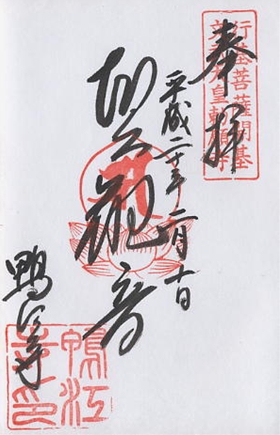 奉拝
行基菩薩開基
平成二十年二月十日
観音
鴨江寺
鴨江
寺印